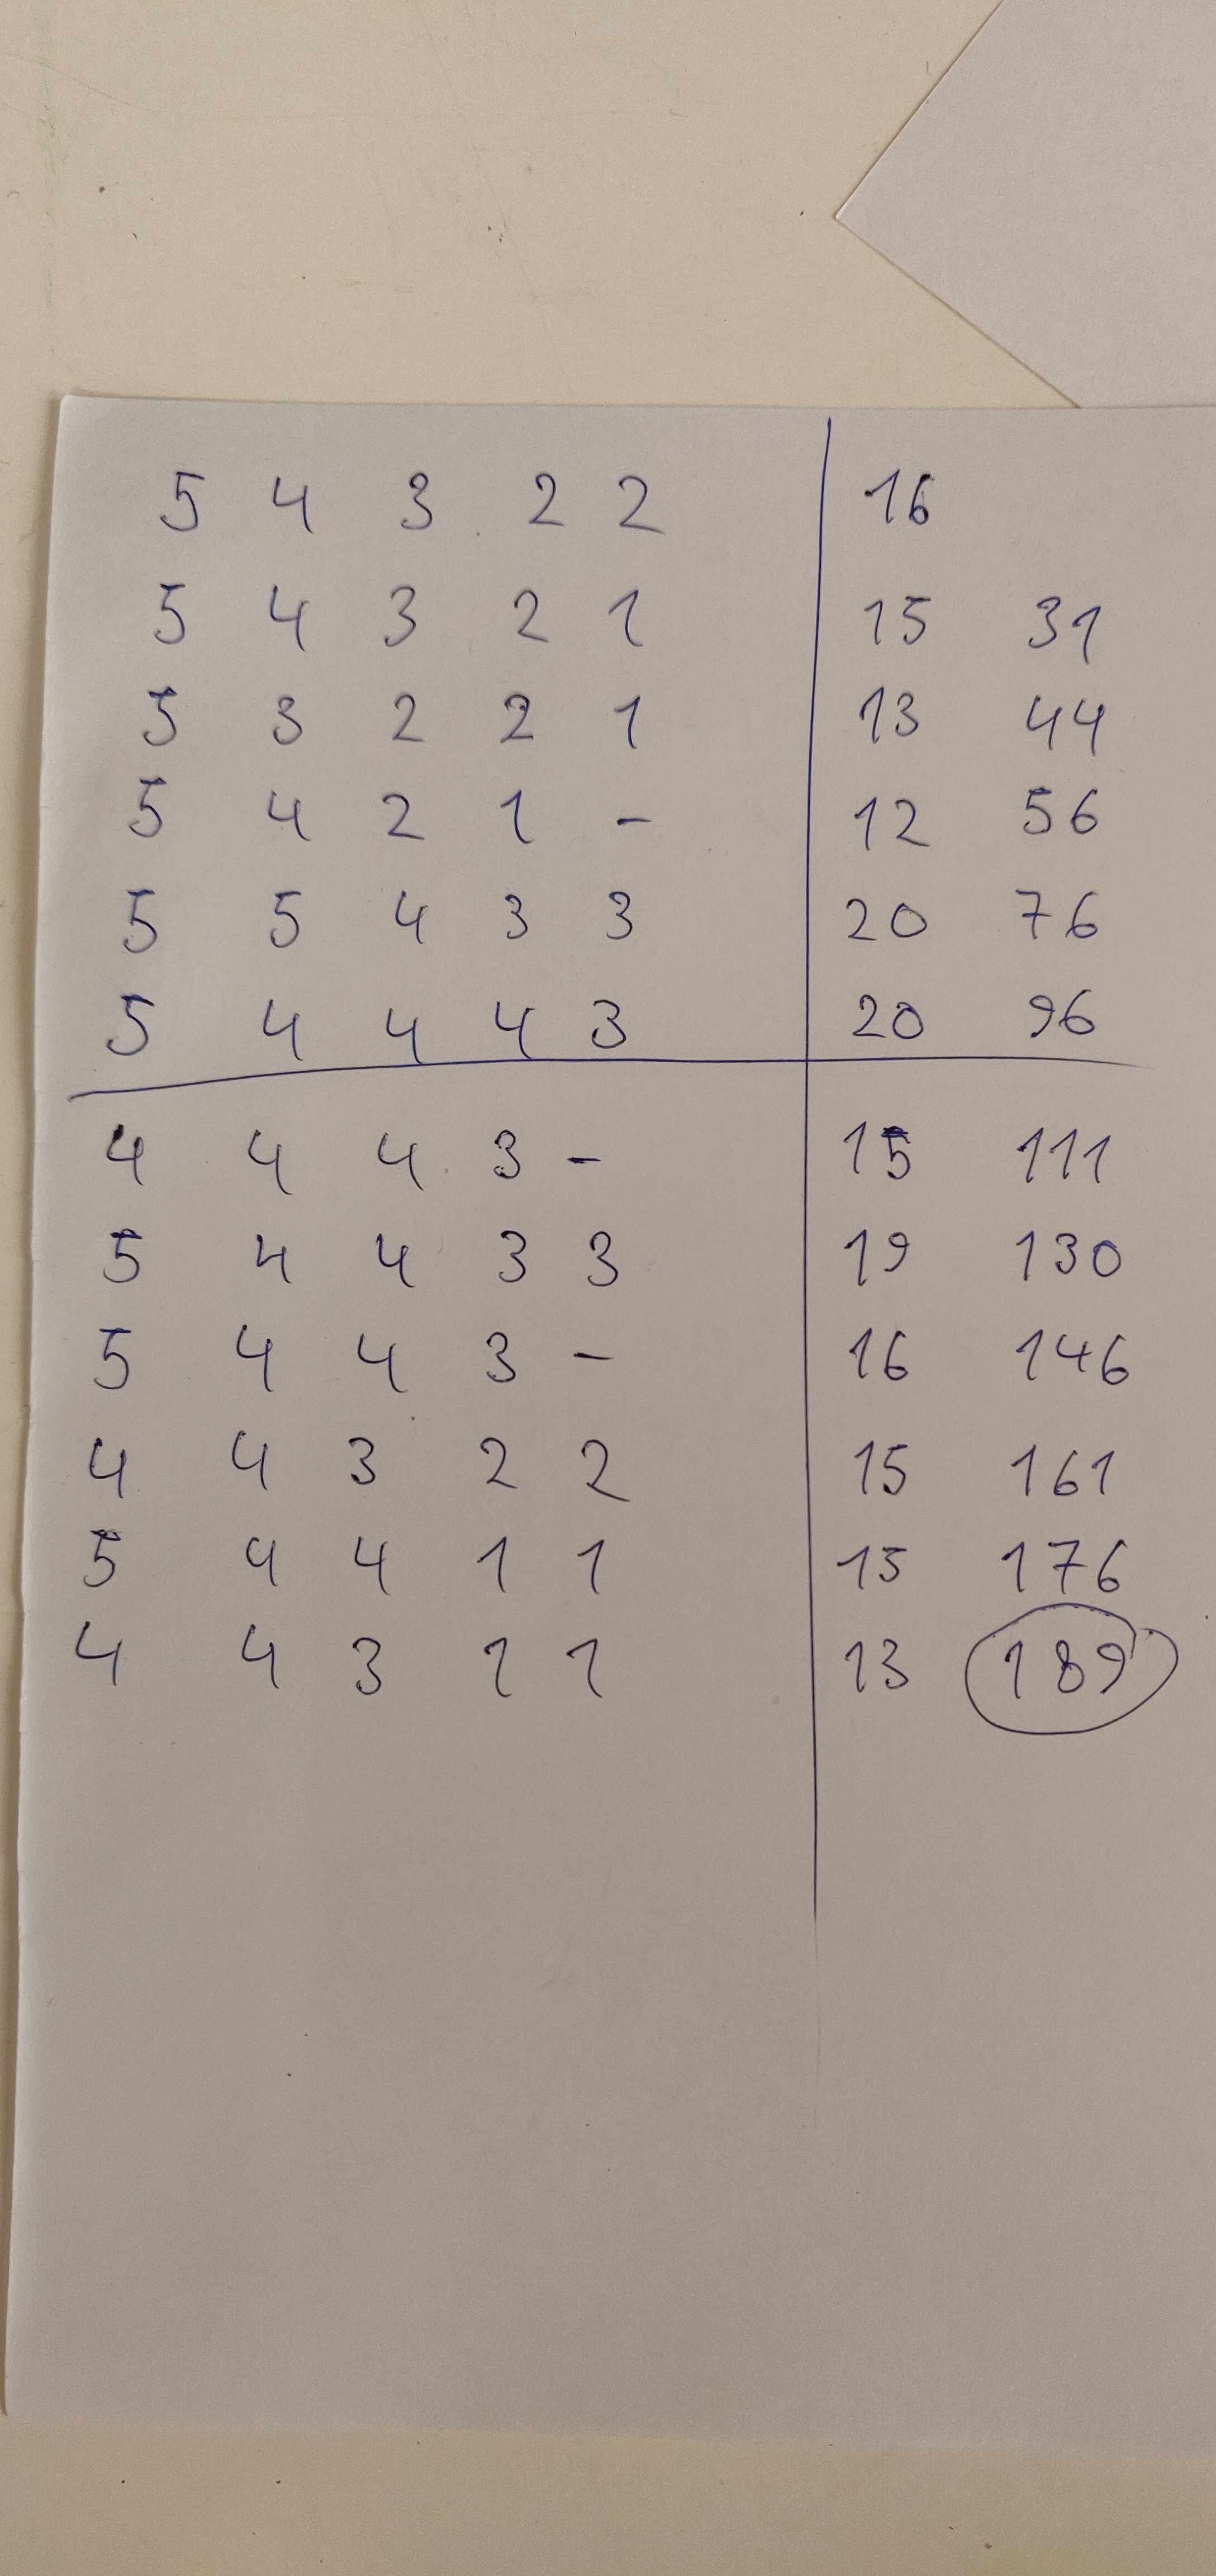 5 4 3 2 2 16
5 4 3 2 1 15 31
5 3 2 2 1 13 44
5 4 2 1 - 12 56
5 5 4 3 3 20 76
5 4 4 4 3 20 96
4 4 4 3 - 15 111
5 4 4 3 3 19 130
5 4 4 3 - 16 146
4 4 3 2 2 15 161
5 4 4 1 1 15 176
4 4 3 1 1 13 189